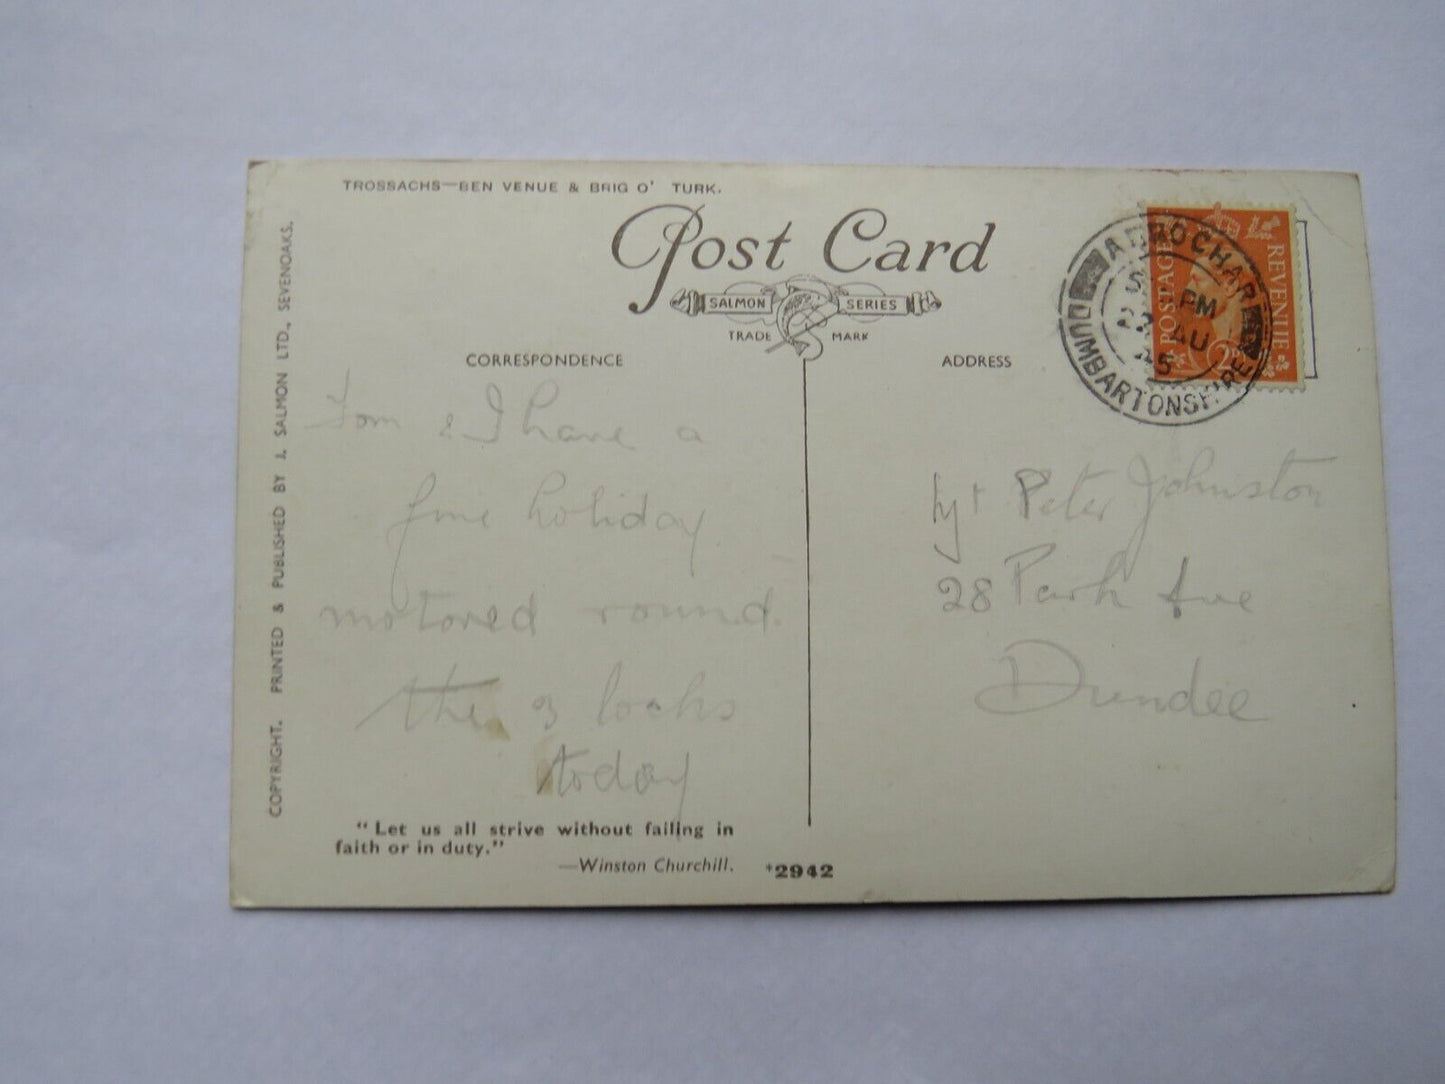 TROSSACHS—BEN VENUE & BRIG O' TURK.
Post Card
SALMON SERIES
TRADE MARK
COPYRIGHT. PRINTED & PUBLISHED BY J. SALMON LTD., SEVENOAKS.
CORRESPONDENCE
Tom & I have a
fine holiday
motored round
the 3 lochs
today
"Let us all strive without failing in
faith or in duty."
—Winston Churchill.
+2942
ADDRESS
Peter Johnston
28 Park Ave
Dundee
POSTAGE REVENUE
ARROCHAR
PM
AU
45
DUMBARTONSHIRE